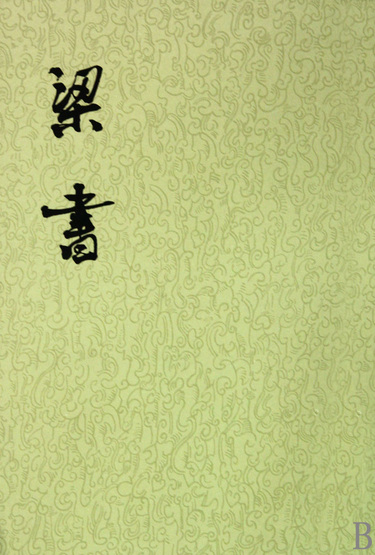 梁書
B